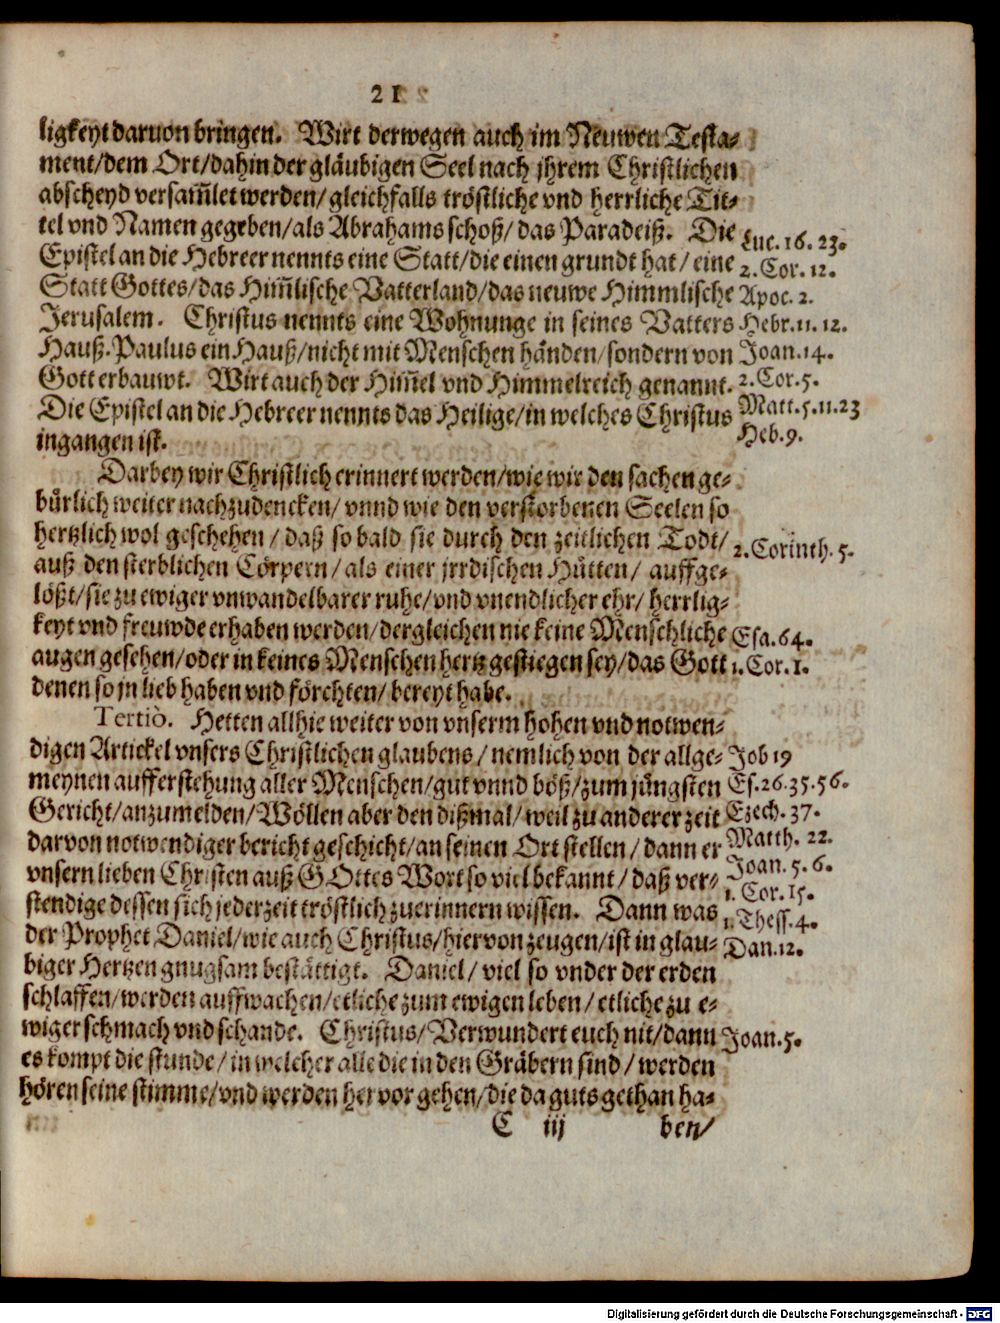 21
ligkeyt daruon bringen. Wirt derwegen auch im Neuwen Testa-
ment/dem Ort/dahin der gläubigen Seel nach jhrem Christlichen
abscheyd versam̃let werden/gleichfalls tröstliche vnd herrliche Tit-
tel vnd Namen gegeben/als Abrahams schoß/das Paradeiß. Die
Luc. 16. 23.
Epistel an die Hebreer nennts eine Statt/die einen grundt hat/eine
2. Cor. 12.
Statt Gottes/das Him̃lische Vatterland/das neuwe Himmlische
Apoc. 2.
Jerusalem. Christus nennts eine Wohnunge in seines Vatters
Hebr. 11. 12.
Hauß. Paulus ein Hauß/nicht mit Menschen händen/sondern von
Joan. 14.
Gott erbauwt. Wirt auch der Him̃el vnd Himmelreich genannt.
2. Cor. 5.
Die Epistel an die Hebreer nennts das Heilige/in welches Christus
Matt. 5. 11. 23
ingangen ist.
Heb. 9.
Darbey wir Christlich erinnert werden/wie wir den sachen ge-
bürlich weiter nachzudencken/vnnd wie den verstorbenen Seelen so
hertzlich wol geschehen/daß so bald sie durch den zeitlichen Todt/
2. Corinth. 5.
auß den sterblichen Cörpern/als einer jrrdischen Hütten/auffge-
lößt/sie zu ewiger vnwandelbarer ruhe/vnd vnendlicher ehr/herrlig-
keyt vnd freuwde erhaben werden/dergleichen nie keine Menschliche
Esa. 64.
augen gesehen/oder in keines Menschen hertz gestiegen sey/das Gott
1. Cor. 1.
denen so jn lieb haben vnd förchten/bereyt habe.
Tertiò. Hetten allhie weiter von vnserm hohen vnd notwen-
digen Artickel vnsers Christlichen glaubens/nemlich von der allge-
Job 19
meynen aufferstehung aller Menschen/gut vnnd böß/zum jüngsten
Es. 26. 35. 56.
Gericht/anzumelden/Wöllen aber den dißmal/weil zu anderer zeit
Ezech. 37.
darvon notwendiger bericht geschicht/an seinen Ort stellen/dann er
Matth. 22.
vnsern lieben Christen auß GOttes Wort so viel bekannt/daß ver-
Joan. 5. 6.
1. Cor. 15.
stendige dessen sich jederzeit tröstlich zuerinnern wissen. Dann was
1. Thess. 4.
der Prophet Daniel/wie auch Christus/hiervon zeugen/ist in glau-
Dan. 12.
biger Hertzen gnugsam bestättigt. Daniel/viel so vnder der erden
schlaffen/werden auffwachen/etliche zum ewigen leben/etliche zu e-
wiger schmach vnd schande. Christus/Verwundert euch nit/dann
Joan. 5.
es kompt die stunde/in welcher alle die in den Gräbern sind/werden
hören seine stimme/vnd werden hervor gehen/die da guts gethan ha-
C iij ben/
Digitalisierung gefördert durch die Deutsche Forschungsgemeinschaft - DFG